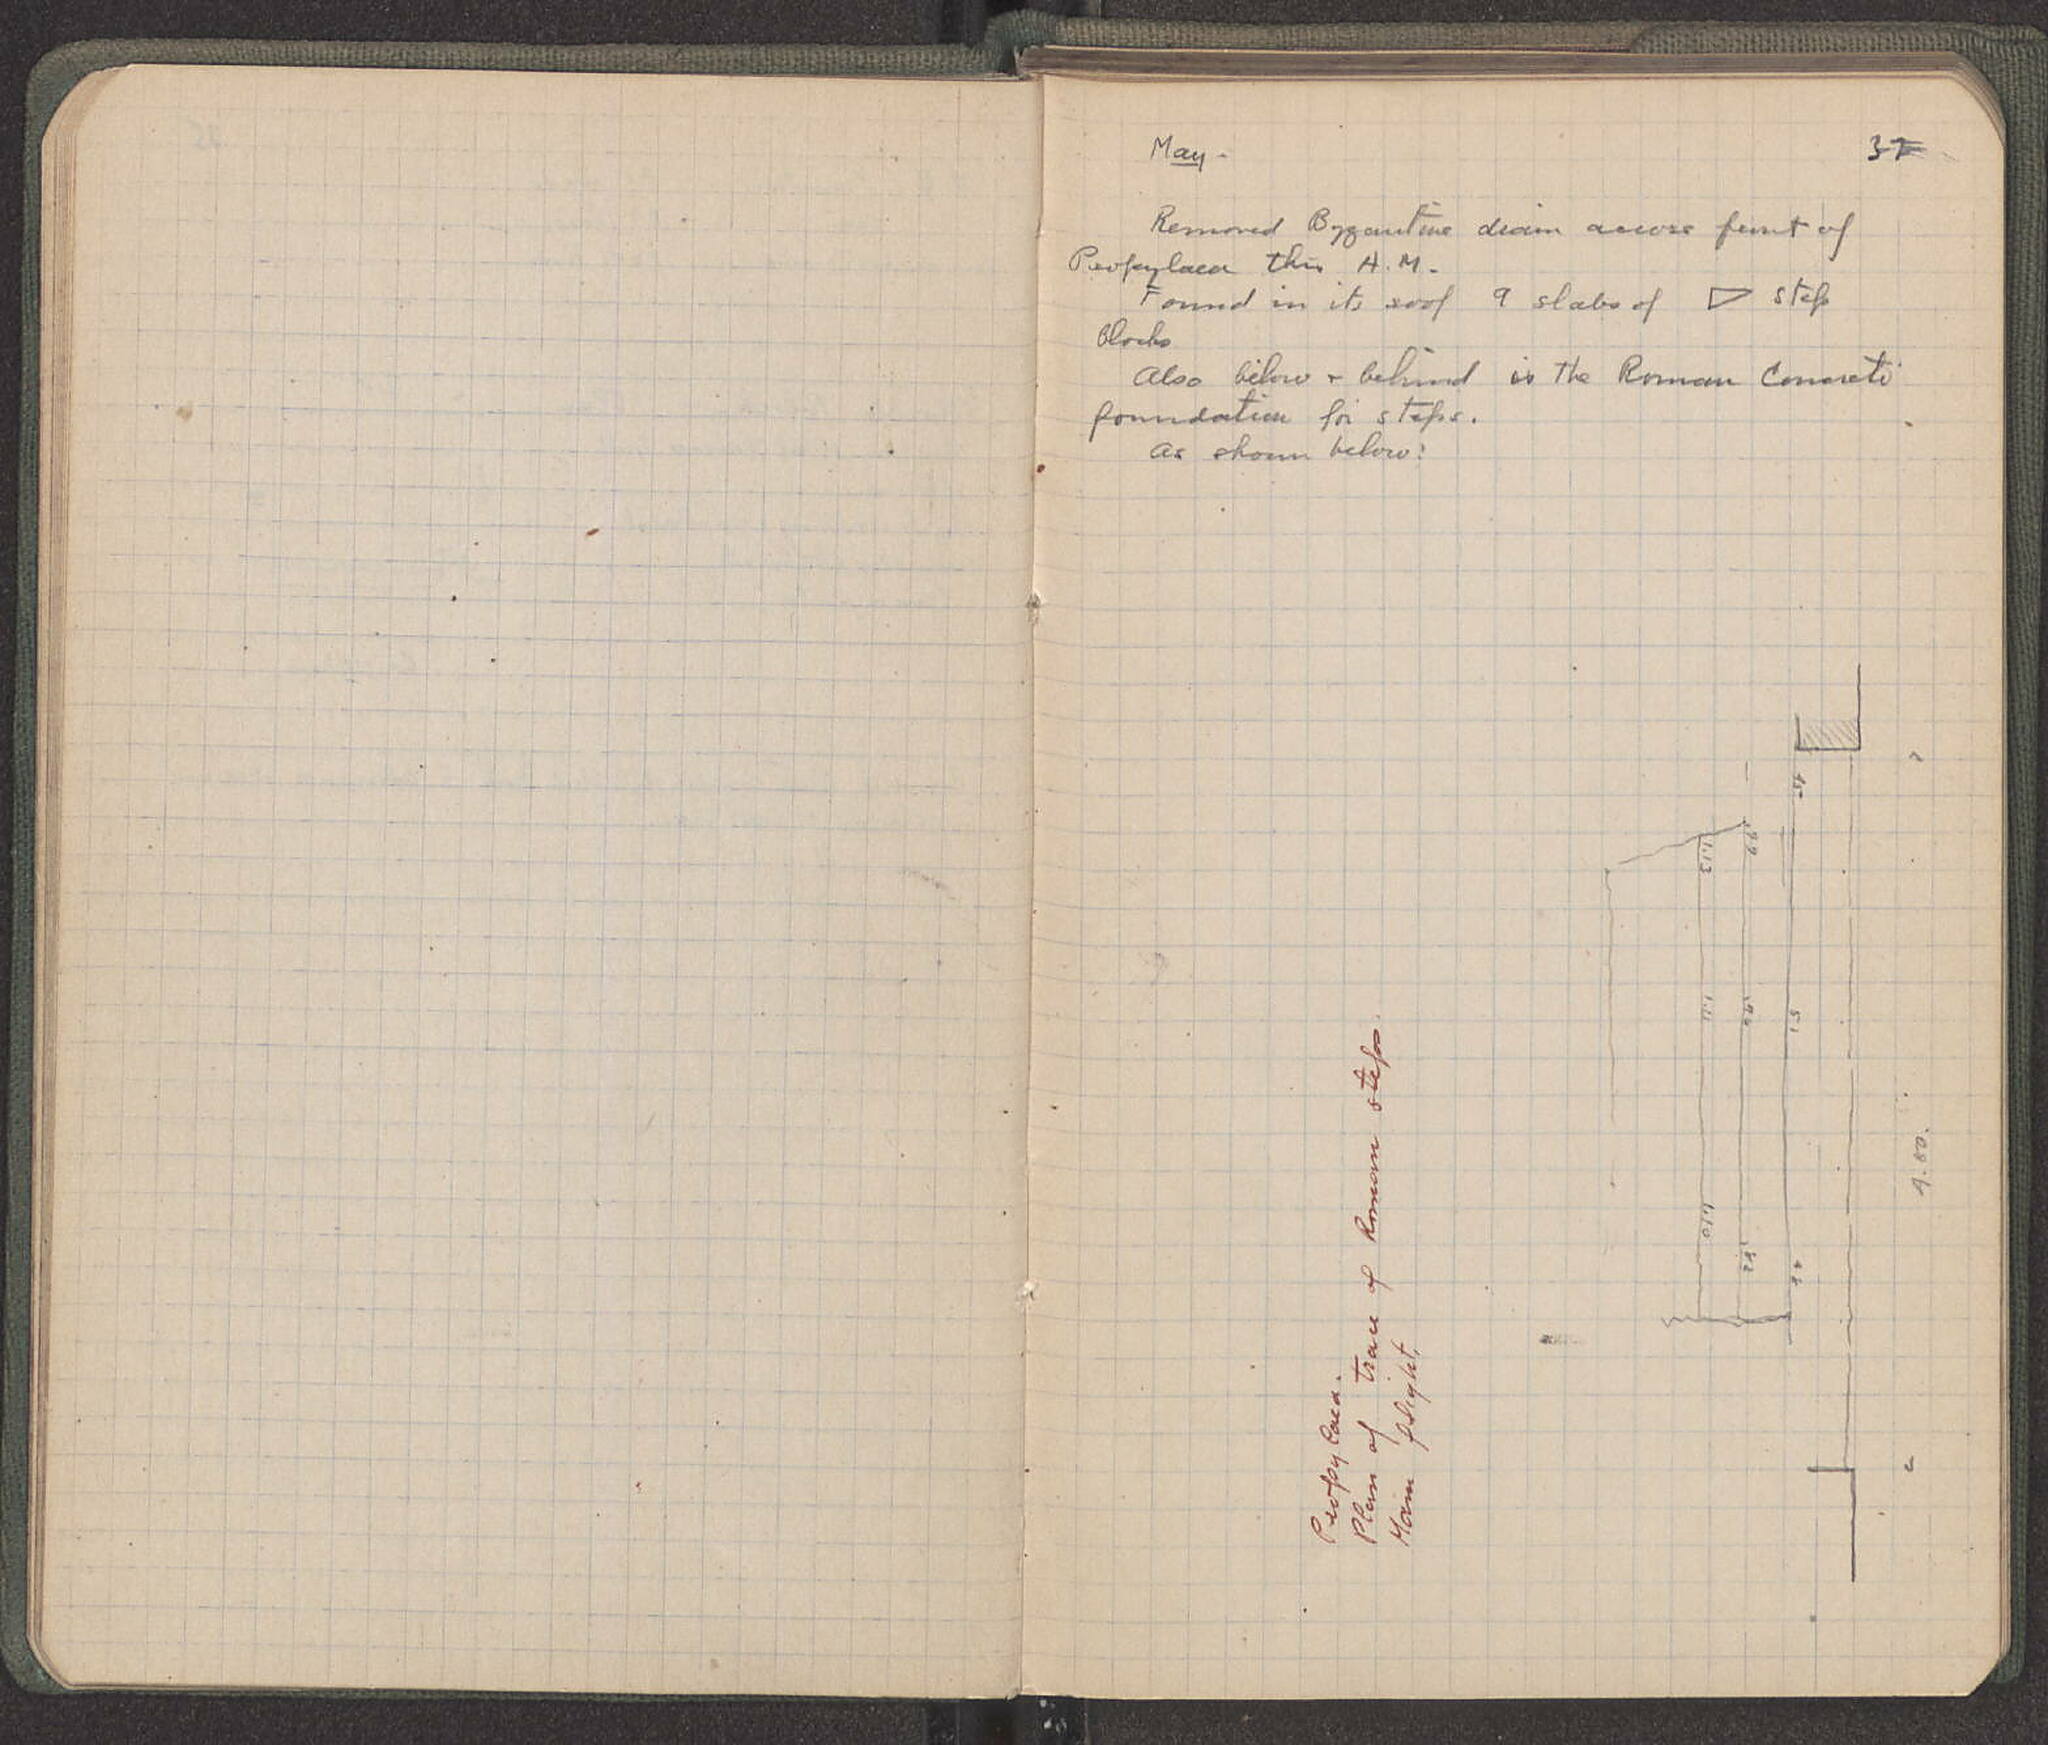 May. 37
Removed Byzantine drain across front of
Propylaea this A.M.
Found in its roof 9 slabs of ▷ step
blocks
Also below + behind is the Roman Concrete
foundation for steps.
As shown below:
Propylaea.
Plan of trace of Roman steps.
Main flight.
.45
.99
1.13
.51
.96
1.11
.46
.92
1.10
9.80.